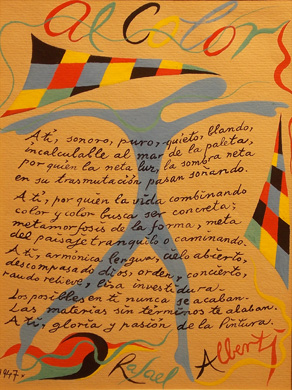 al Color
A ti, sonoro, puro, quieto, blando,
incalculable al mar de la paleta,
por quien la neta luz, la sombra neta
en su trasmutación pasan soñando.
A ti, por quien la vida combinando
color y color busca ser concreta;
metamorfosis de la forma, meta
del paisaje tranquilo o caminando.
A ti, armónica lengua, cielo abierto,
descompasado dios, orden, concierto,
raudo relieve, lisa investidura.
Los posibles en ti nunca se acaban.
Las materias sin términos te alaban.
A ti, gloria y pasión de la Pintura.
Rafael Alberti
1947.